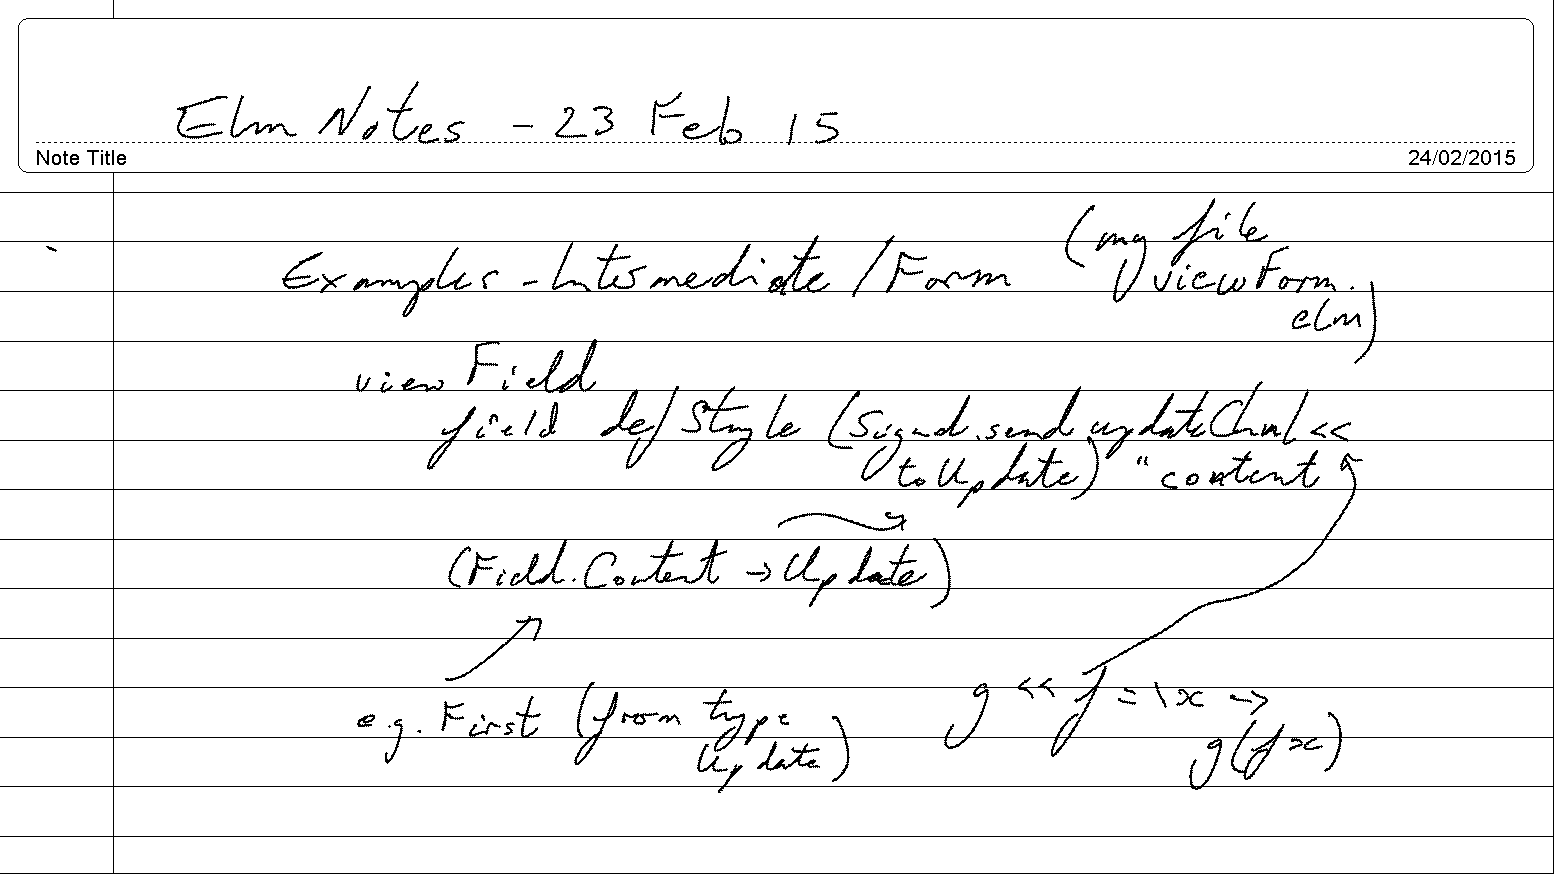 Elm Notes - 23 Feb 15
Note Title
24/02/2015
Examples - Intermediate / Form (my file
viewForm.
elm)
view Field
field defStyle (Signal.send updateChnl <<
toUpdate) "content
(Field.Content → Update)
e.g. First (from type
Update)
g << f = \x →
g(f x)